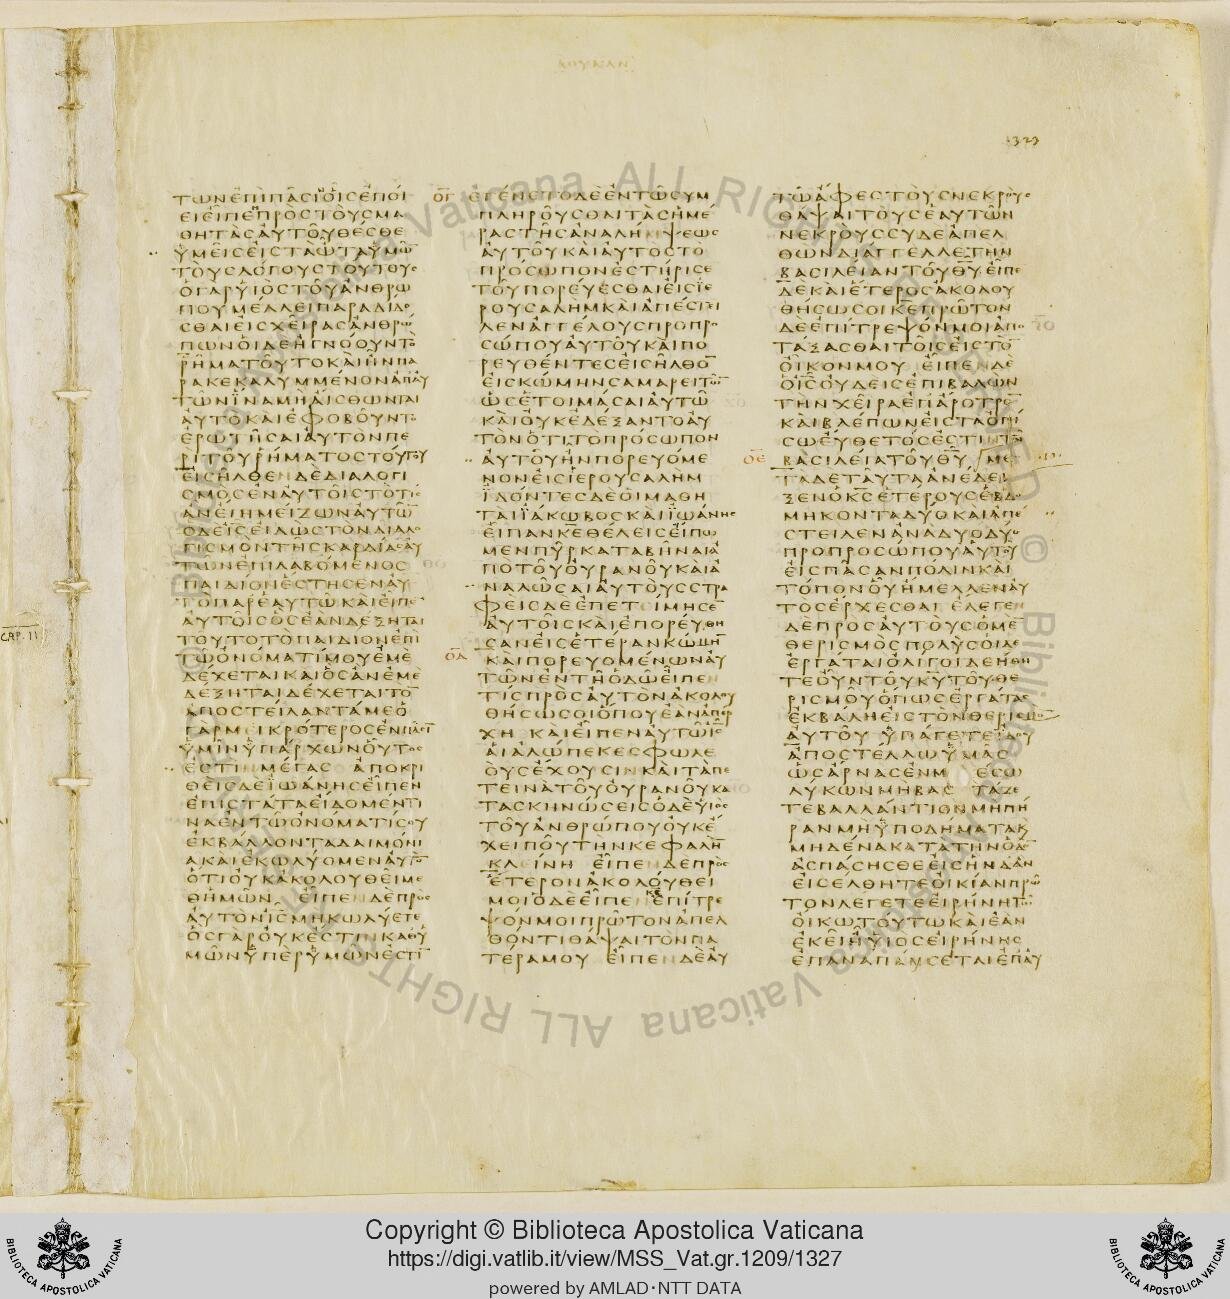 ΤΩΝΕΠΙΠΑΣΙΟΙΣΕΠΟΙ
ΕΙΕΙΠΕΠΡΟΣΤΟΥΣΜΑ
ΘΗΤΑΣΑΥΤΟΥΘΕΣΘΕ
ΥΜΕΙΣΕΙΣΤΑΩΤΑΥΜΩ
ΤΟΥΣΛΟΓΟΥΣΤΟΥΤΟΥΣ
ΟΓΑΡΥΙΟΣΤΟΥΑΝΘΡΩ
ΠΟΥΜΕΛΛΕΙΠΑΡΑΔΙΔΟ
ΣΘΑΙΕΙΣΧΕΙΡΑΣΑΝΘΡΩ
ΠΩΝΟΙΔΕΗΓΝΟΟΥΝΤΟ
ΡΗΜΑΤΟΥΤΟΚΑΙΗΝΠΑ
ΡΑΚΕΚΑΛΥΜΜΕΝΟΝΑΠΑΥ
ΤΩΝΙΝΑΜΗΑΙΣΘΩΝΤΑΙ
ΑΥΤΟΚΑΙΕΦΟΒΟΥΝΤΟ
ΕΡΩΤΗΣΑΙΑΥΤΟΝΠΕ
ΡΙΤΟΥΡΗΜΑΤΟΣΤΟΥΤΟΥ
ΕΙΣΗΛΘΕΝΔΕΔΙΑΛΟΓΙ
ΣΜΟΣΕΝΑΥΤΟΙΣΤΟΤΙΣ
ΑΝΕΙΗΜΕΙΖΩΝΑΥΤΩ
ΟΔΕΙΣΕΙΔΩΣΤΟΝΔΙΑΛΟ
ΓΙΣΜΟΝΤΗΣΚΑΡΔΙΑΣΑΥ
ΤΩΝΕΠΙΛΑΒΟΜΕΝΟΣ
ΠΑΙΔΙΟΝΕΣΤΗΣΕΝΑΥ
ΤΟΠΑΡΕΑΥΤΩΚΑΙΕΙΠΕ
ΑΥΤΟΙΣΟΣΕΑΝΔΕΞΗΤΑΙ
ΤΟΥΤΟΤΟΠΑΙΔΙΟΝΕΠΙ
ΤΩΟΝΟΜΑΤΙΜΟΥΕΜΕ
ΔΕΧΕΤΑΙΚΑΙΟΣΑΝΕΜΕ
ΔΕΞΗΤΑΙΔΕΧΕΤΑΙΤΟ
ΑΠΟΣΤΕΙΛΑΝΤΑΜΕΟ
ΓΑΡΜΕΙΚΡΟΤΕΡΟΣΕΝΠΑΣΙ
ΥΜΙΝΥΠΑΡΧΩΝΟΥΤΟΣ
ΕΣΤΙΝΜΕΓΑΣ ΑΠΟΚΡΙ
ΘΕΙΣΔΕΙΩΑΝΗΣΕΙΠΕΝ
ΕΠΙΣΤΑΤΑΕΙΔΟΜΕΝΤΙ
ΝΑΕΝΤΩΟΝΟΜΑΤΙΣΟΥ
ΕΚΒΑΛΛΟΝΤΑΔΑΙΜΟΝΙ
ΑΚΑΙΕΚΩΛΥΟΜΕΝΑΥΤΟ
ΟΤΙΟΥΚΑΚΟΛΟΥΘΕΙΜΕ
ΘΗΜΩΝ ΕΙΠΕΝΔΕΠΡΟΣ
ΑΥΤΟΝΙΣΜΗΚΩΛΥΕΤΕ
ΟΣΓΑΡΟΥΚΕΣΤΙΝΚΑΘΥ
ΜΩΝΥΠΕΡΥΜΩΝΕΣΤΙ
ΟΓ ΕΓΕΝΕΤΟΔΕΕΝΤΩΣΥΜ
ΠΛΗΡΟΥΣΘΑΙΤΑΣΗΜΕ
ΡΑΣΤΗΣΑΝΑΛΗΜΨΕΩΣ
ΑΥΤΟΥΚΑΙΑΥΤΟΣΤΟ
ΠΡΟΣΩΠΟΝΕΣΤΗΡΙΣΕ
ΤΟΥΠΟΡΕΥΕΣΘΑΙΕΙΣΙΕ
ΡΟΥΣΑΛΗΜΚΑΙΑΠΕΣΤΕΙ
ΛΕΝΑΓΓΕΛΟΥΣΠΡΟΠΡΟ
ΣΩΠΟΥΑΥΤΟΥΚΑΙΠΟ
ΡΕΥΘΕΝΤΕΣΕΙΣΗΛΘΟ
ΕΙΣΚΩΜΗΝΣΑΜΑΡΕΙΤΩ
ΩΣΕΤΟΙΜΑΣΑΙΑΥΤΩ
ΚΑΙΟΥΚΕΔΕΞΑΝΤΟΑΥ
ΤΟΝΟΤΙΤΟΠΡΟΣΩΠΟΝ
ΑΥΤΟΥΗΝΠΟΡΕΥΟΜΕ
ΝΟΝΕΙΣΙΕΡΟΥΣΑΛΗΜ
ΙΔΟΝΤΕΣΔΕΟΙΜΑΘΗ
ΤΑΙΙΑΚΩΒΟΣΚΑΙΙΩΑΝΗΣ
ΕΙΠΑΝΚΕΘΕΛΕΙΣΕΙΠΩ
ΜΕΝΠΥΡΚΑΤΑΒΗΝΑΙΑ
ΠΟΤΟΥΟΥΡΑΝΟΥΚΑΙΑ
ΝΑΛΩΣΑΙΑΥΤΟΥΣΣΤΡΑ
ΦΕΙΣΔΕΕΠΕΤΙΜΗΣΕ
ΑΥΤΟΙΣΚΑΙΕΠΟΡΕΥΘΗ
ΣΑΝΕΙΣΕΤΕΡΑΝΚΩΜΗ
ΟΔ ΚΑΙΠΟΡΕΥΟΜΕΝΩΝΑΥ
ΤΩΝΕΝΤΗΟΔΩΕΙΠΕΝ
ΤΙΣΠΡΟΣΑΥΤΟΝΑΚΟΛΟΥ
ΘΗΣΩΣΟΙΟΠΟΥΕΑΝΑΠΕΡ
ΧΗ ΚΑΙΕΙΠΕΝΑΥΤΩΙΣ
ΑΙΑΛΩΠΕΚΕΣΦΩΛΕ
ΟΥΣΕΧΟΥΣΙΝΚΑΙΤΑΠΕ
ΤΕΙΝΑΤΟΥΟΥΡΑΝΟΥΚΑ
ΤΑΣΚΗΝΩΣΕΙΣΟΔΕΥΙΟΣ
ΤΟΥΑΝΘΡΩΠΟΥΟΥΚΕ
ΧΕΙΠΟΥΤΗΝΚΕΦΑΛΗ
ΚΛΕΙΝΗ ΕΙΠΕΝΔΕΠΡΟΣ
ΕΤΕΡΟΝΑΚΟΛΟΥΘΕΙ
ΜΟΙΟΔΕΕΙΠΕΝΕΠΙΤΡΕ
ΨΟΝΜΟΙΠΡΩΤΟΝΑΠΕΛ
ΘΟΝΤΙΘΑΨΑΙΤΟΝΠΑ
ΤΕΡΑΜΟΥ ΕΙΠΕΝΔΕΑΥ
ΤΩΑΦΕΣΤΟΥΣΝΕΚΡΟΥΣ
ΘΑΨΑΙΤΟΥΣΕΑΥΤΩΝ
ΝΕΚΡΟΥΣΣΥΔΕΑΠΕΛ
ΘΩΝΔΙΑΓΓΕΛΛΕΤΗΝ
ΒΑΣΙΛΕΙΑΝΤΟΥΘΥΕΙΠΕ
ΔΕΚΑΙΕΤΕΡΟΣΑΚΟΛΟΥ
ΘΗΣΩΣΟΙΚΕΠΡΩΤΟΝ
ΔΕΕΠΙΤΡΕΨΟΝΜΟΙΑΠΟ
ΤΑΞΑΣΘΑΙΤΟΙΣΕΙΣΤΟ
ΟΙΚΟΝΜΟΥ ΕΙΠΕΝΔΕ
ΟΙΣΟΥΔΕΙΣΕΠΙΒΑΛΩΝ
ΤΗΝΧΕΙΡΑΕΠΑΡΟΤΡΟ
ΚΑΙΒΛΕΠΩΝΕΙΣΤΑΟΠΙ
ΣΩΕΥΘΕΤΟΣΕΣΤΙΝΤΗ
ΟΕ ΒΑΣΙΛΕΙΑΤΟΥΘΥ ΜΕ
ΤΑΔΕΤΑΥΤΑΑΝΕΔΕΙ
ΞΕΝΟΚΣΕΤΕΡΟΥΣΕΒΔΟ
ΜΗΚΟΝΤΑΔΥΟΚΑΙΑΠΕ
ΣΤΕΙΛΕΝΑΝΑΔΥΟΔΥΟ
ΠΡΟΠΡΟΣΩΠΟΥΑΥΤΟΥ
ΕΙΣΠΑΣΑΝΠΟΛΙΝΚΑΙ
ΤΟΠΟΝΟΥΗΜΕΛΛΕΝΑΥ
ΤΟΣΕΡΧΕΣΘΑΙ ΕΛΕΓΕΝ
ΔΕΠΡΟΣΑΥΤΟΥΣΟΜΕ
ΘΕΡΙΣΜΟΣΠΟΛΥΣΟΙΔΕ
ΕΡΓΑΤΑΙΟΛΙΓΟΙΔΕΗΘΗ
ΤΕΟΥΝΤΟΥΚΥΤΟΥΘΕ
ΡΙΣΜΟΥΟΠΩΣΕΡΓΑΤΑΣ
ΕΚΒΑΛΗΕΙΣΤΟΝΘΕΡΙΣΜΟ
ΑΥΤΟΥ ΥΠΑΓΕΤΕΙΔΟΥ
ΑΠΟΣΤΕΛΛΩΥΜΑΣ
ΩΣΑΡΝΑΣΕΝΜΕΣΩ
ΛΥΚΩΝΜΗΒΑΣΤΑΖΕ
ΤΕΒΑΛΛΑΝΤΙΟΝΜΗΠΗ
ΡΑΝΜΗΥΠΟΔΗΜΑΤΑΚ
ΜΗΔΕΝΑΚΑΤΑΤΗΝΟΔΟ
ΑΣΠΑΣΗΣΘΕΕΙΣΗΝΔΑΝ
ΕΙΣΕΛΘΗΤΕΟΙΚΙΑΝΠΡΩ
ΤΟΝΛΕΓΕΤΕΕΙΡΗΝΗΤΩ
ΟΙΚΩΤΟΥΤΩΚΑΙΕΑΝ
ΕΚΕΙΗΥΙΟΣΕΙΡΗΝΗΣ
ΕΠΑΝΑΠΑΗΣΕΤΑΙΕΠΑΥ
CAP. II
Copyright © Biblioteca Apostolica Vaticana
https://digi.vatlib.it/view/MSS_Vat.gr.1209/1327
powered by AMLAD·NTT DATA
BIBLIOTECA APOSTOLICA VATICANA
BIBLIOTECA APOSTOLICA VATICANA